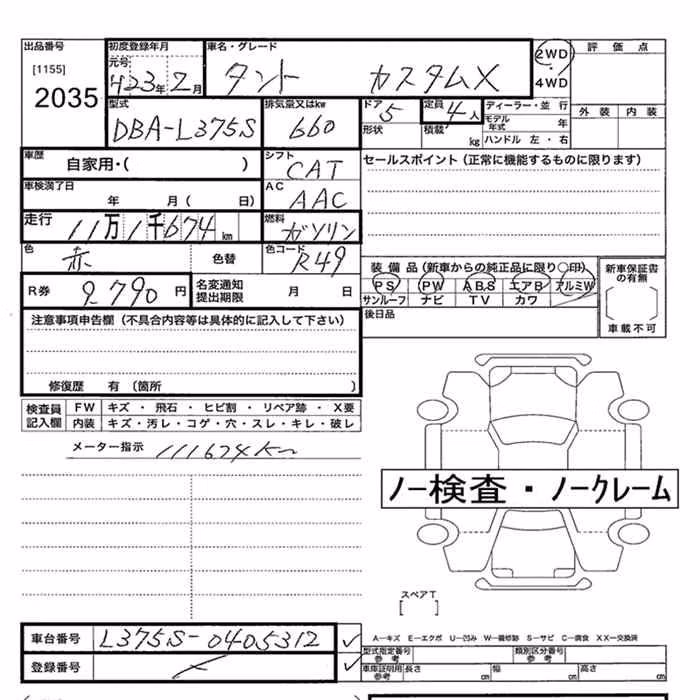 出品番号 初度登録年月 車名・グレード 2WD 評価点
[1155] 元号 ・
2035 H23年2月 タント カスタムX 4WD
型式 排気量又はkw ドア 定員 ディーラー・並行 外装 内装
DBA-L375S 660 5 4人 モデル年式 年
形状 積載 kg ハンドル 左・右
車歴 自家用・( ) シフト CAT セールスポイント(正常に機能するものに限ります)
車検満了日 年 月( 日) AC AAC
走行 11万1千674km 燃料 ガソリン
色 赤 色替 色コード R49 装備品(新車からの純正品に限り○印) 新車保証書の有無
R券 9790円 名変通知提出期限 月 日 PS PW ABS エアB アルミW
サンルーフ ナビ TV カワ [ ]
注意事項申告欄(不具合内容等は具体的に記入して下さい) 後日品 車載不可
修復歴 有(箇所 )
検査員 FW キズ・飛石・ヒビ割・リペア跡・X要
記入欄 内装 キズ・汚レ・コゲ・穴・スレ・キレ・破レ
メーター指示 111674Km
ノー検査・ノークレーム
スペアT
[ ]
車台番号 L375S-0405312 ✓ A―キズ E―エクボ U―凹み W―補修跡 S―サビ C―腐食 XX―交換済
型式指定番号 参考 類別区分番号 参考
登録番号 ✓ 車庫証明用 参考 長さ cm 幅 cm 高さ cm